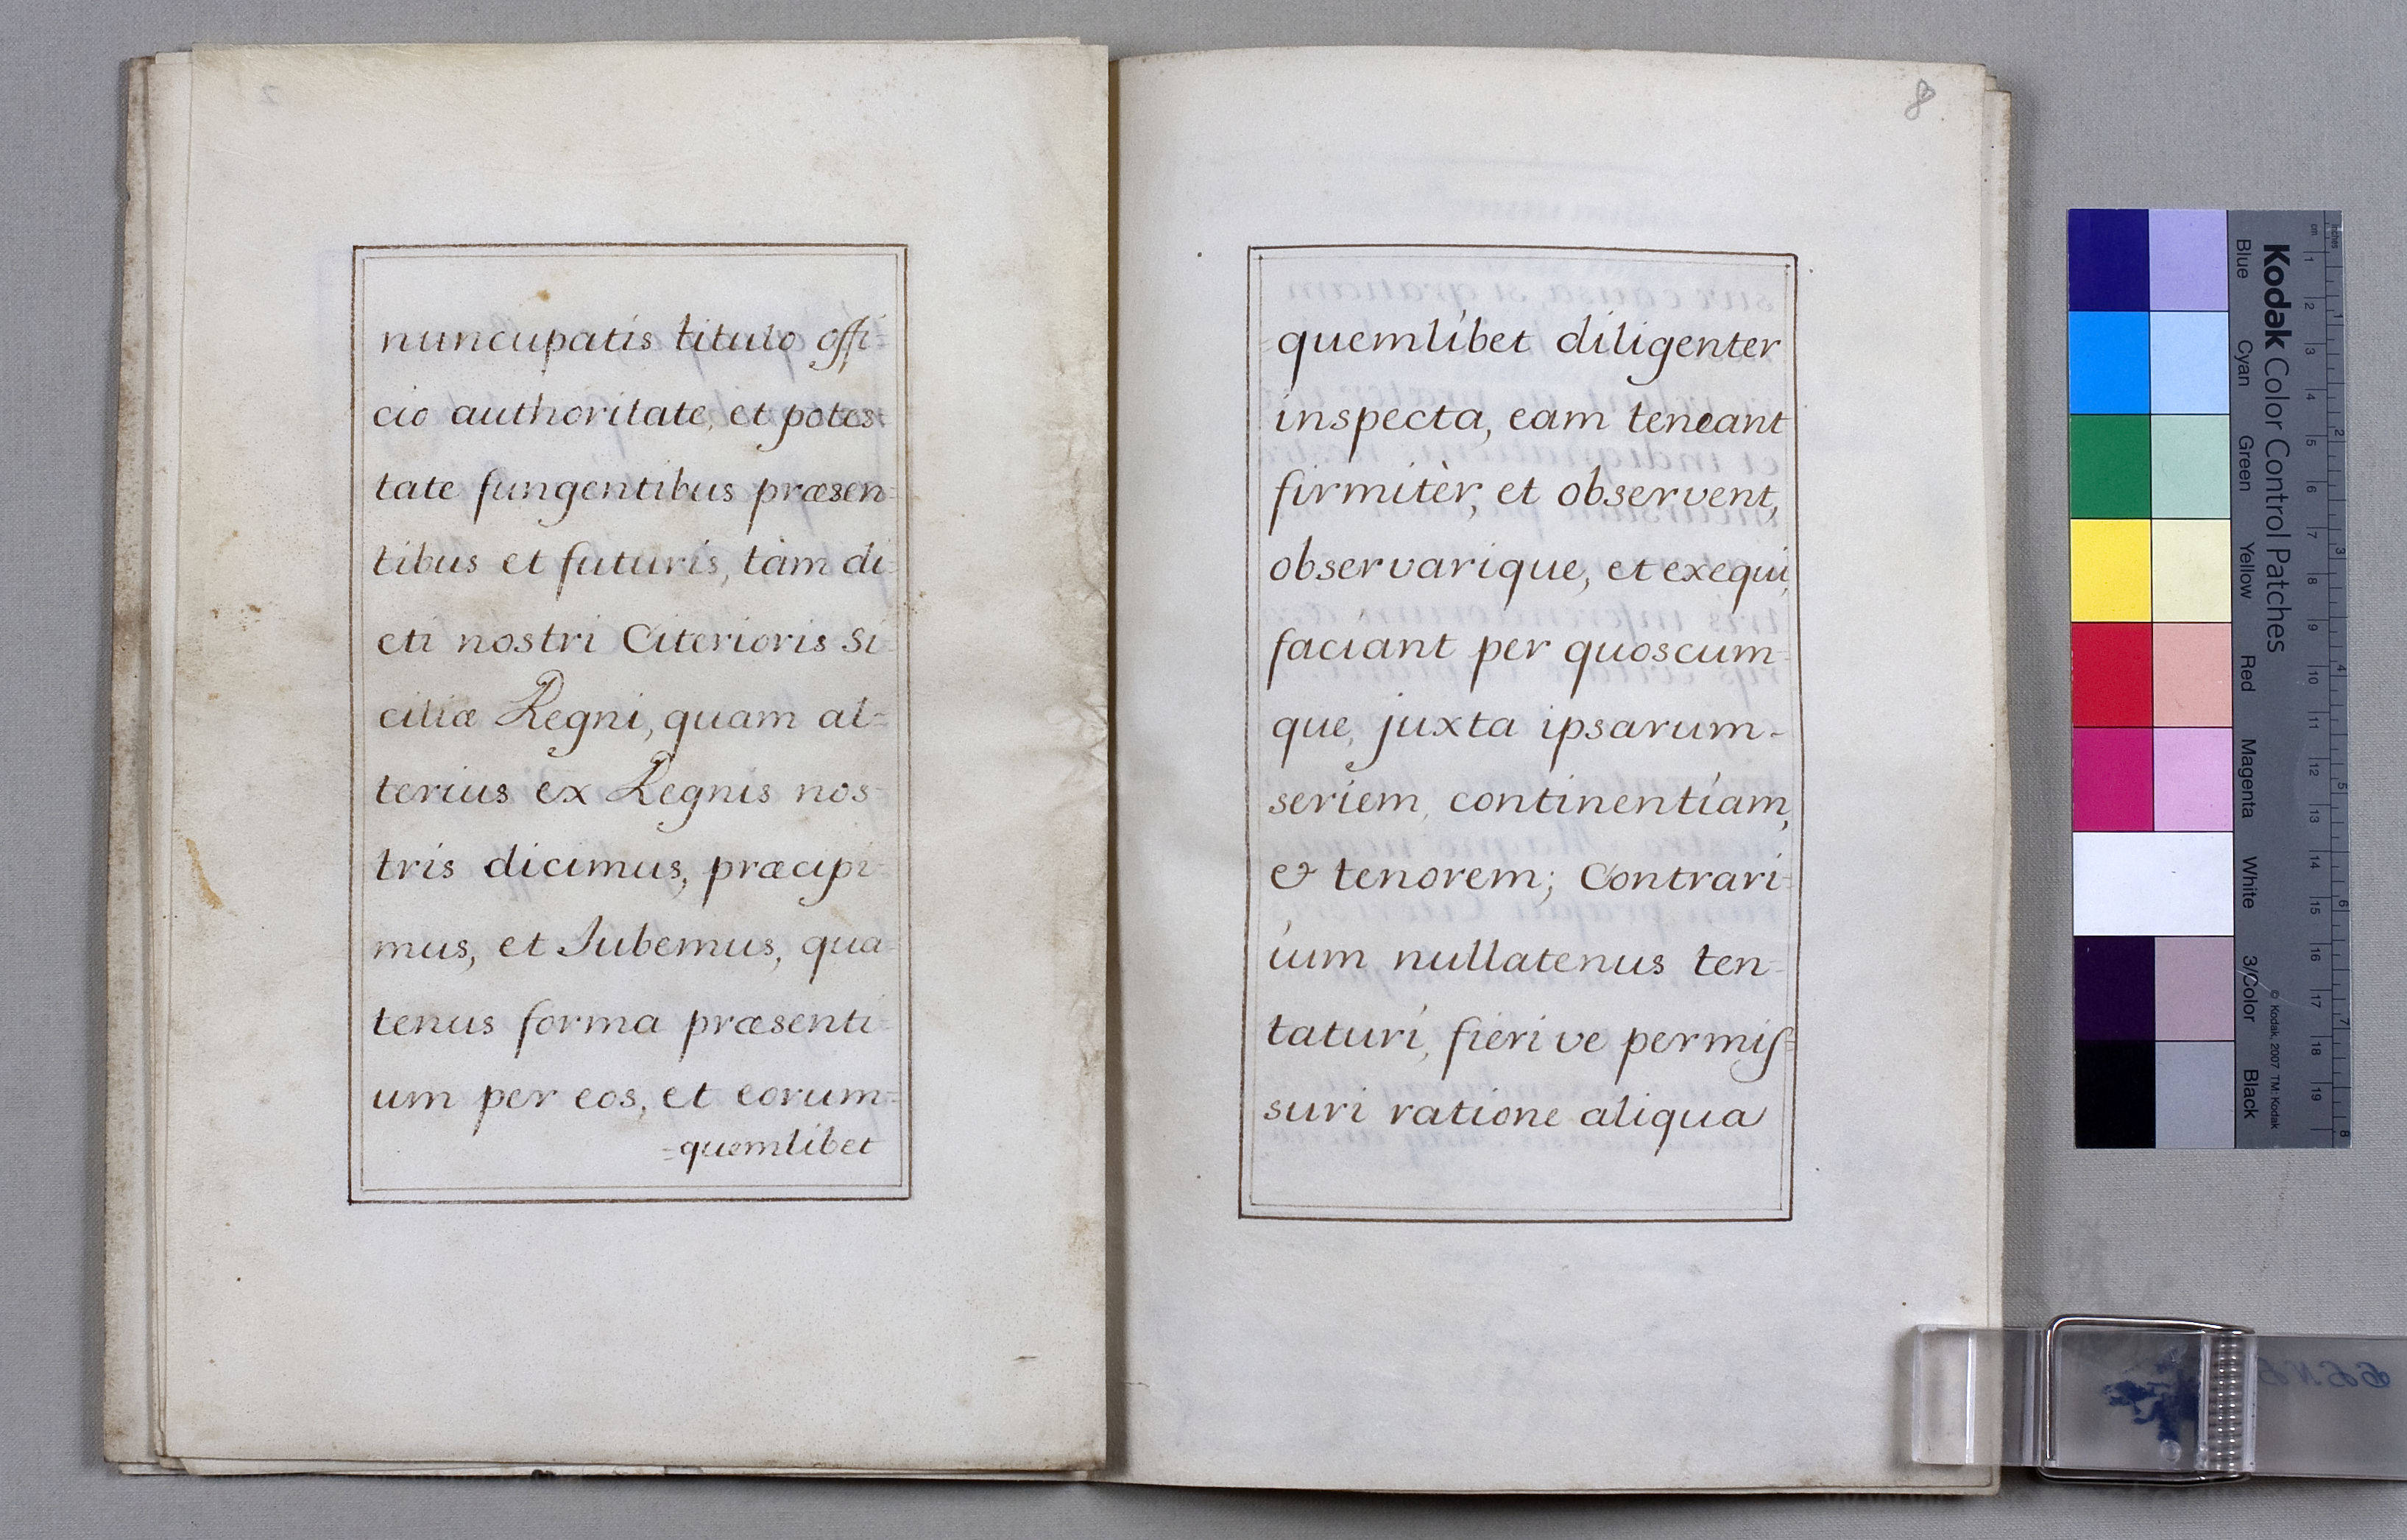 nuncupatis titulo offi=
cio authoritate, et potes-
tate fungentibus præsen=
tibus et futuris, tàm di=
cti nostri Citerioris Si=
ciliæ Regni, quam al=
terius ex Regnis nos-
tris dicimus, præcipi=
mus, et Jubemus, qua=
tenus forma præsenti=
um per eos, et eorum=
=quemlibet
8
quemlibet diligenter
inspecta, eam teneant
firmitèr, et observent,
observarique, et exequi,
faciant per quoscum=
que, juxta ipsarum-
seriem, continentiam,
& tenorem; Contrari=
ium nullatenus ten=
taturi, fierive permis=
suri ratione aliqua
Kodak Color Control Patches
Blue
Cyan
Green
Yellow
Red
Magenta
White
3/Color
Black
© Kodak, 2007 TM: Kodak
inches
cm
1 2 3 4 5 6 7 8
1 2 3 4 5 6 7 8 9 10 11 12 13 14 15 16 17 18 19